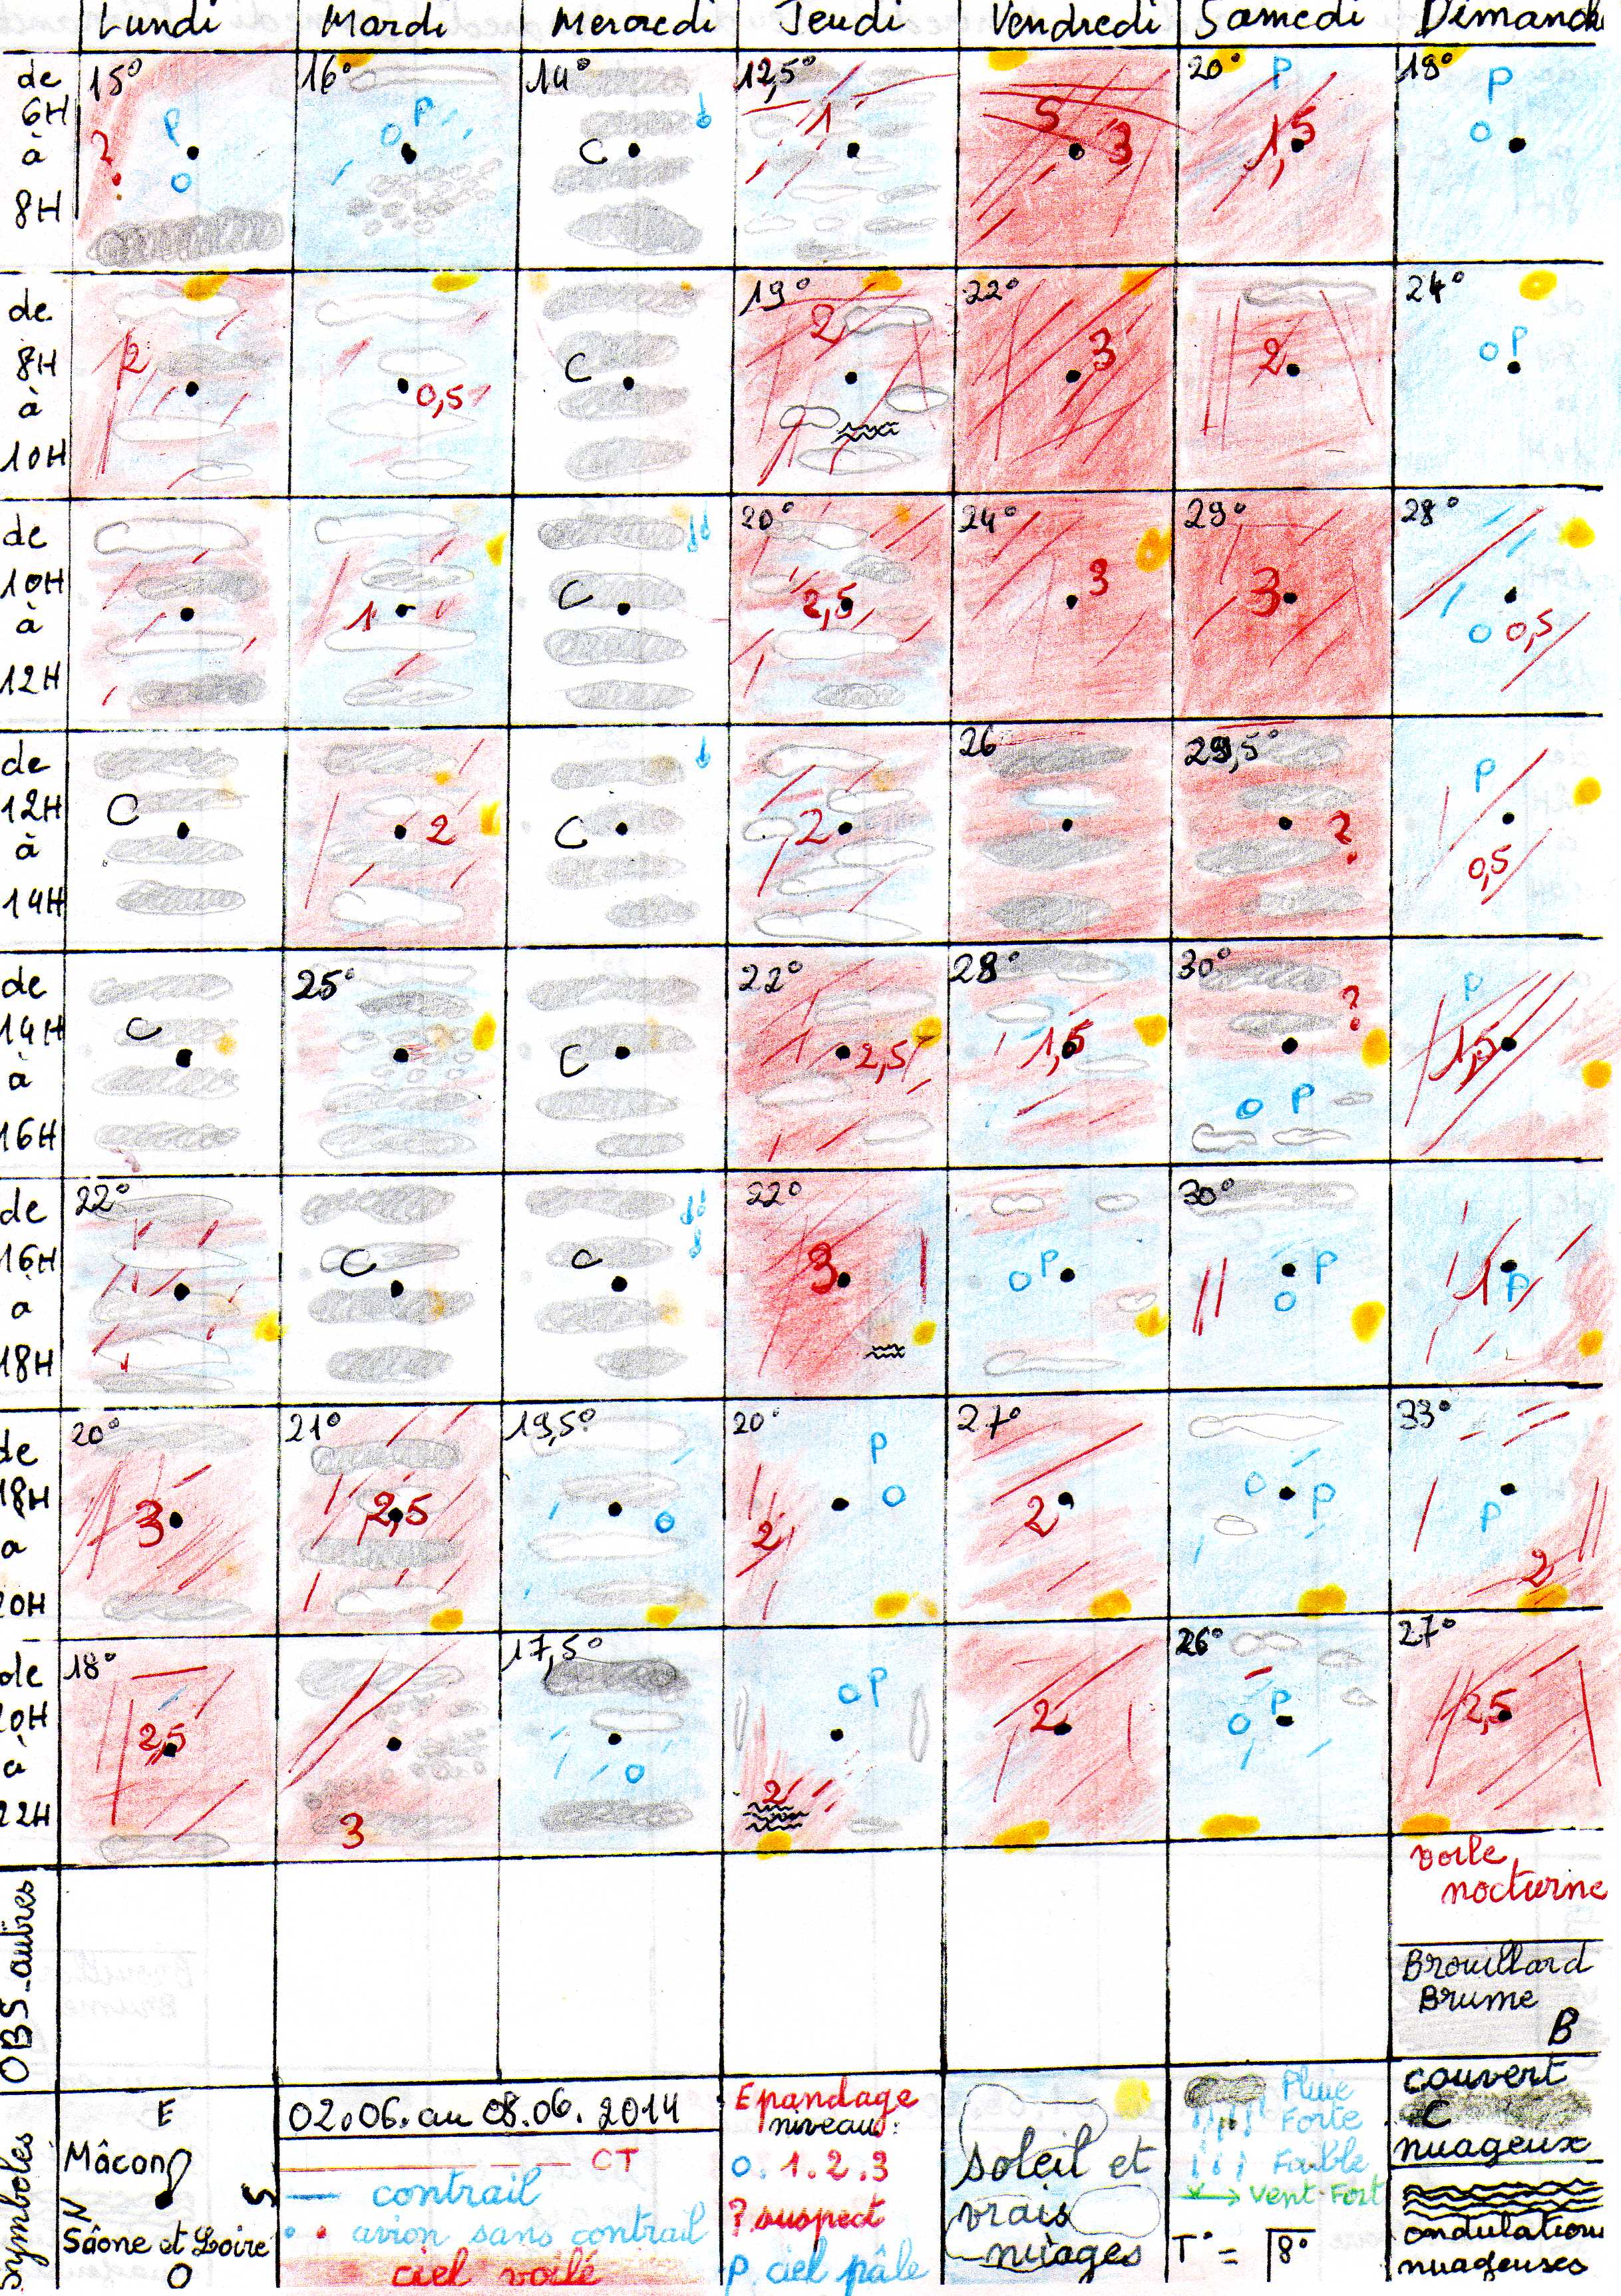 Lundi Mardi Mercredi Jeudi Vendredi Samedi Dimanche
de 6H à 8H
15° P ? O
16° P O
14° C
12,5° 1
S 3
20° P 1,5
18° P O
de 8H à 10H
2
0,5
C
19° 2
22° 3
2
24° O P
de 10H à 12H
1
C
20° 2,5
24° 3
29° 3
28° O 0,5
de 12H à 14H
C
2
C
2
26
29,5° ?
P 0,5
de 14H à 16H
C
25°
C
22° 2,5
28° 1,5
30° ? O P
P 1,5
de 16H a 18H
22°
C
C
22° 3
O P
30° P O
1 P
de 18H a 20H
20° 3
21° 2,5
19,5° O
20° P O 2
27° 2
O P
33° P 2
de 20H a 22H
18° 2,5
3
17,5° O
O P 2
2
26° P O
27° 2,5
OBS.autres
voile
nocturne
Brouillard
Brume
B
Symboles
E
Mâcon
N S
Saône et Loire
O
02.06. au 08.06. 2014
CT
contrail
avion sans contrail
ciel voilé
Epandage
niveau :
0. 1. 2. 3
? suspect
P ciel pâle
soleil et
vrais
nuages
Pluie
Forte
Faible
vent Fort
T° = 8°
couvert
C
nuageux
ondulations
nuageuses